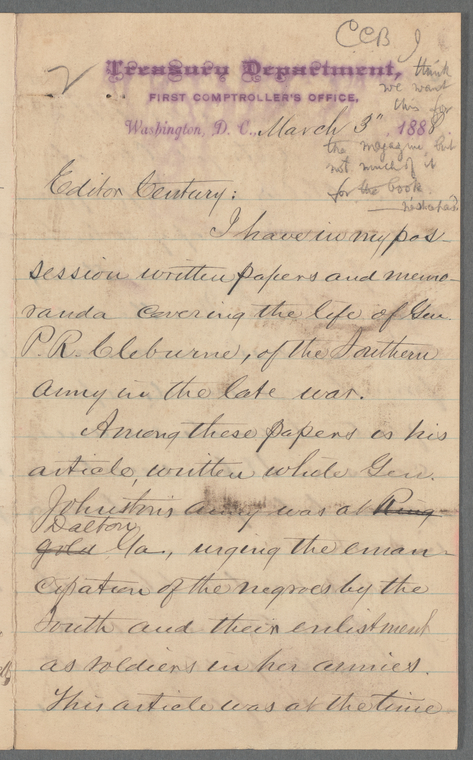 CCB I
think
we want
this for
the magazine but
not much of it
for the book.
Treasury Department,
FIRST COMPTROLLER'S OFFICE,
Washington, D. C., March 3" , 1888
Editor Century:
I have in my pos-
session written papers and memo-
randa covering the life of Gen.
P. R. Cleburne, of the Southern
Army in the late war.
Among these papers is his
article, written while Gen.
Johnston's army was at Ring-
gold Dalton, Ga., urging the eman-
cipation of the negroes by the
South and their enlistment
as soldiers in her armies.
This article was at the time